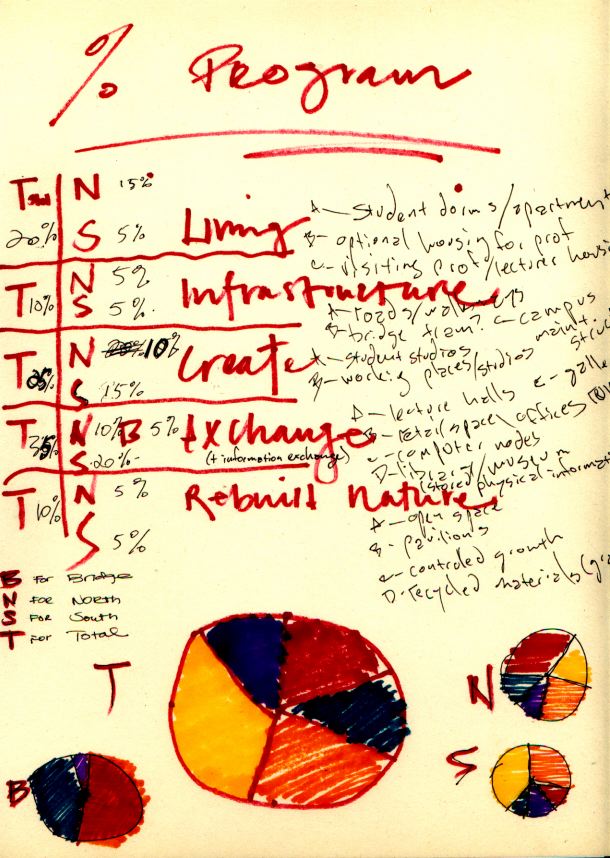 % Program
Total N 15%
20% S 5% Living
A - student dorms/apartment
B - optional housing for prof
C - visiting prof/lecturer housi
T 10% N 5%
S 5% Infrastructure
A - roads/walkways
B - bridge tram? C - campus
maint.
T N 10% Create
S 15%
A - student studios
B - working places/studios
T 35% N 10% B 5% Exchange
S 20% (+ information exchange)
A - lecture halls E - galle
B - retail space/offices
C - computer nodes
D - library/museum
(stored physical informatio
T 10% N 5% Rebuilt Nature
S 5%
A - open space
B - pavilions
C - controled growth
D - recycled materials
B for Bridge
N for North
S for South
T for Total
T
N
S
B